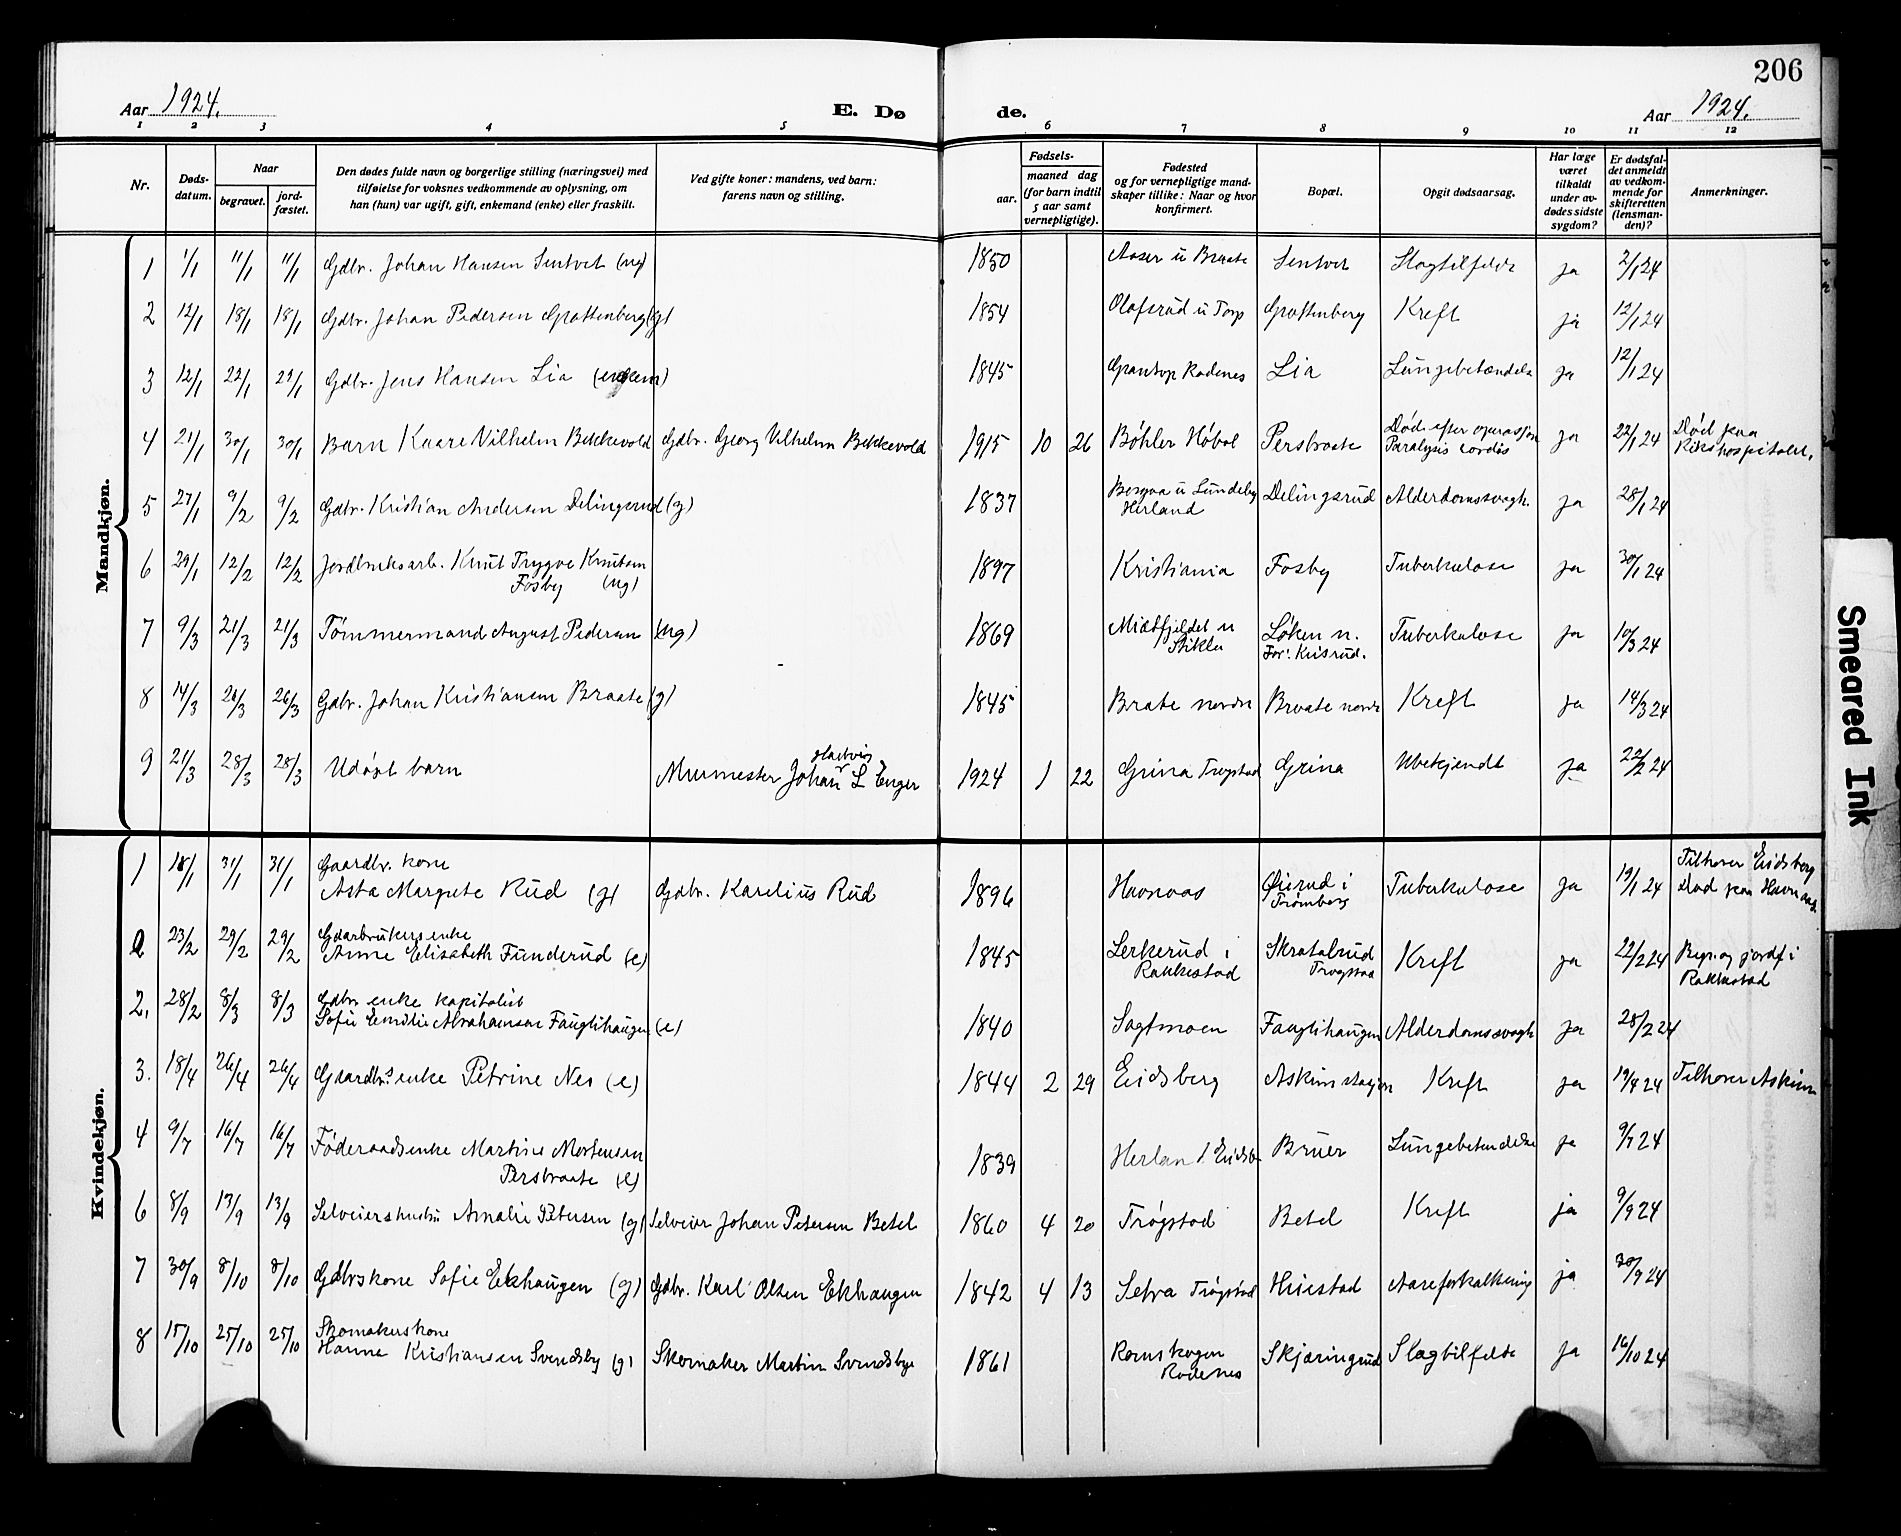 206
Aar 1924.
E. Dø de.
Aar 1924.
1 2 3 4 5 6 7 8 9 10 11 12
Nr.
Døds-datum.
Naar
begravet.
jord-fæstet.
Den dødes fulde navn og borgerlige stilling (næringsvei) med
tilføielse for voksnes vedkommende av oplysning, om
han (hun) var ugift, gift, enkemand (enke) eller fraskilt.
Ved gifte koner: mandens, ved barn:
farens navn og stilling.
Fødsels-
aar.
maaned dag
(for barn indtil
5 aar samt
vernepligtige).
Fødested
og for vernepligtige mand-
skaper tillike: Naar og hvor
konfirmert.
Bopæl.
Opgit dødsaarsag.
Har læge
været
tilkaldt
under av-
dødes sidste
sygdom?
Er dødsfal-
det anmeldt
av vedkom-
mende for
skifteretten
(lensman-
den)?
Anmerkninger.
Mandkjøn.
1 1/1 11/1 11/1 Gdbr. Johan Hansen Sentvet (ug) 1850 Aaser u Braate Sentvet Slagtilfelde ja 2/1 24
2 12/1 18/1 18/1 Gdbr. Johan Pedersen Grottenberg (g) 1854 Olafsrud u Torp Grottenberg Kreft ja 12/1 24
3 12/1 22/1 22/1 Gdbr. Jens Hansen Lia 1845 Grantop Rødenes Lia Lungebetændelse ja 12/1 24
4 21/1 30/1 30/1 Barn Kaare Vilhelm Bekkevold Gdbr. Georg Vilhelm Bekkevold 1915 10 26 Bøhler Høbøl Perstraate Død efter operasjon ja 22/1 24 Død paa
Paralysis cordis Rikshospitalet.
5 27/1 9/2 9/2 Gdbr. Kristian Andersen Delingsrud (g) 1837 u Lundeby Delingsrud Alderdomssvagh. ja 28/1 24
Herland
6 29/1 12/2 12/2 Jordbruksarb. Knut Trygve Knutsen 1897 Kristiania Fosby Tuberkulose ja 30/1 24
Fosby (ug)
7 9/3 21/3 21/3 Tømmermand August Pedersen (ug) 1869 Midtfjeldet u Løken n. Tuberkulose ja 10/3 24
Stikla
8 14/3 26/3 26/3 Gdbr. Johan Kristiansen Braate (g) 1845 Braate nordre Braate nordr Kreft ja 14/3 24
9 21/3 28/3 28/3 Udøpt barn Murmester Johan L Enger 1924 1 22 Grina Trøgstad Grina Ubekjendt ja 22/2 24
Kvindekjøn.
1 18/1 31/1 31/1 Gaardbr. kone
Asta Margrete Rud (g) Gdbr. Karelius Rud 1896 Havnaas Øierud i Tuberkulose ja 19/1 24 Tilhører Eidsberg
Trømborg Død paa Havnaas.
2 23/2 29/2 29/2 Gaarbrukers enke
Anne Elisabeth Funderud (e) 1845 Lerkerud i Skratalrud Kreft ja 22/2 24 Begr. og jordf i
Rakkestad Trøgstad Rakkestad
2. 28/2 8/3 8/3 Gdbr enke kapitalist
Sofie Emilie Abrahamsen Fauglihaugen (e) 1840 Sagtmoen Fauglihaugen Alderdomssvagh ja 28/2 24
3. 18/4 26/4 26/4 Gaardbr.s enke Petrine Nes (e) 1844 2 29 Eidsberg Askim stasjon Kreft ja 19/4 24 Tilhører Askim
4 9/7 16/7 16/7 Føderaadsenke Martine Mortensen 1839 Herlan i Eidsb Bruer Lungebetendelse ja 9/7 24
Perstraate (e)
6 8/9 13/9 13/9 Selveiershustru Amalie Petersen (g) Selveier Johan Petersen Betel 1860 4 20 Trøgstad Betel Kreft ja 9/9 24
7 30/9 8/10 8/10 Gdbrskone Sofie Ekhaugen (g) Gdbr. Karl Olsen Ekhaugen 1842 4 13 Setra Trøgstad Huiestad Aareforkalkning ja 30/9 24
8 15/10 25/10 25/10 Skomakerskone
Hanna Kristiansen Svendsby (g) Skomaker Martin Svendsbye 1861 Romskogen Skjæringrud Slagtilfelde ja 16/10 24
Rødenes
Smeared Ink